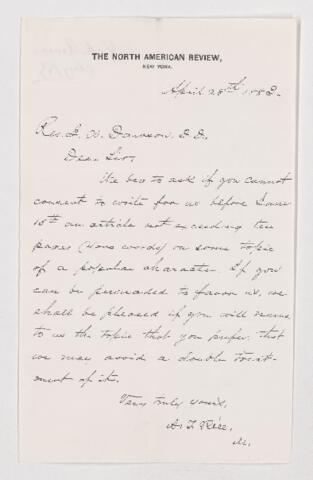 THE NORTH AMERICAN REVIEW,
NEW YORK.
April 28th 1883.
Rev. J. W. Dawson, D.D.
Dear Sir:
We beg to ask if you cannot
consent to write for us before June
15th an article not exceeding ten
pages (4000 words) on some topic
of a popular character. If you
can be persuaded to favor us, we
shall be pleased if you will name
to us the topic that you prefer, that
we may avoid a double treat-
ment of it.
Very truly yours,
A. T. Rice,